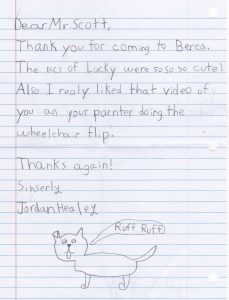 Dear Mr. Scott,
Thank you for coming to Berea.
The pics of Lucky were so so so cute!
Also I realy liked that video of
you an your parnter doing the
wheelchair flip.
Thanks again!
Sinserly
Jordan Healey
Ruff Ruff